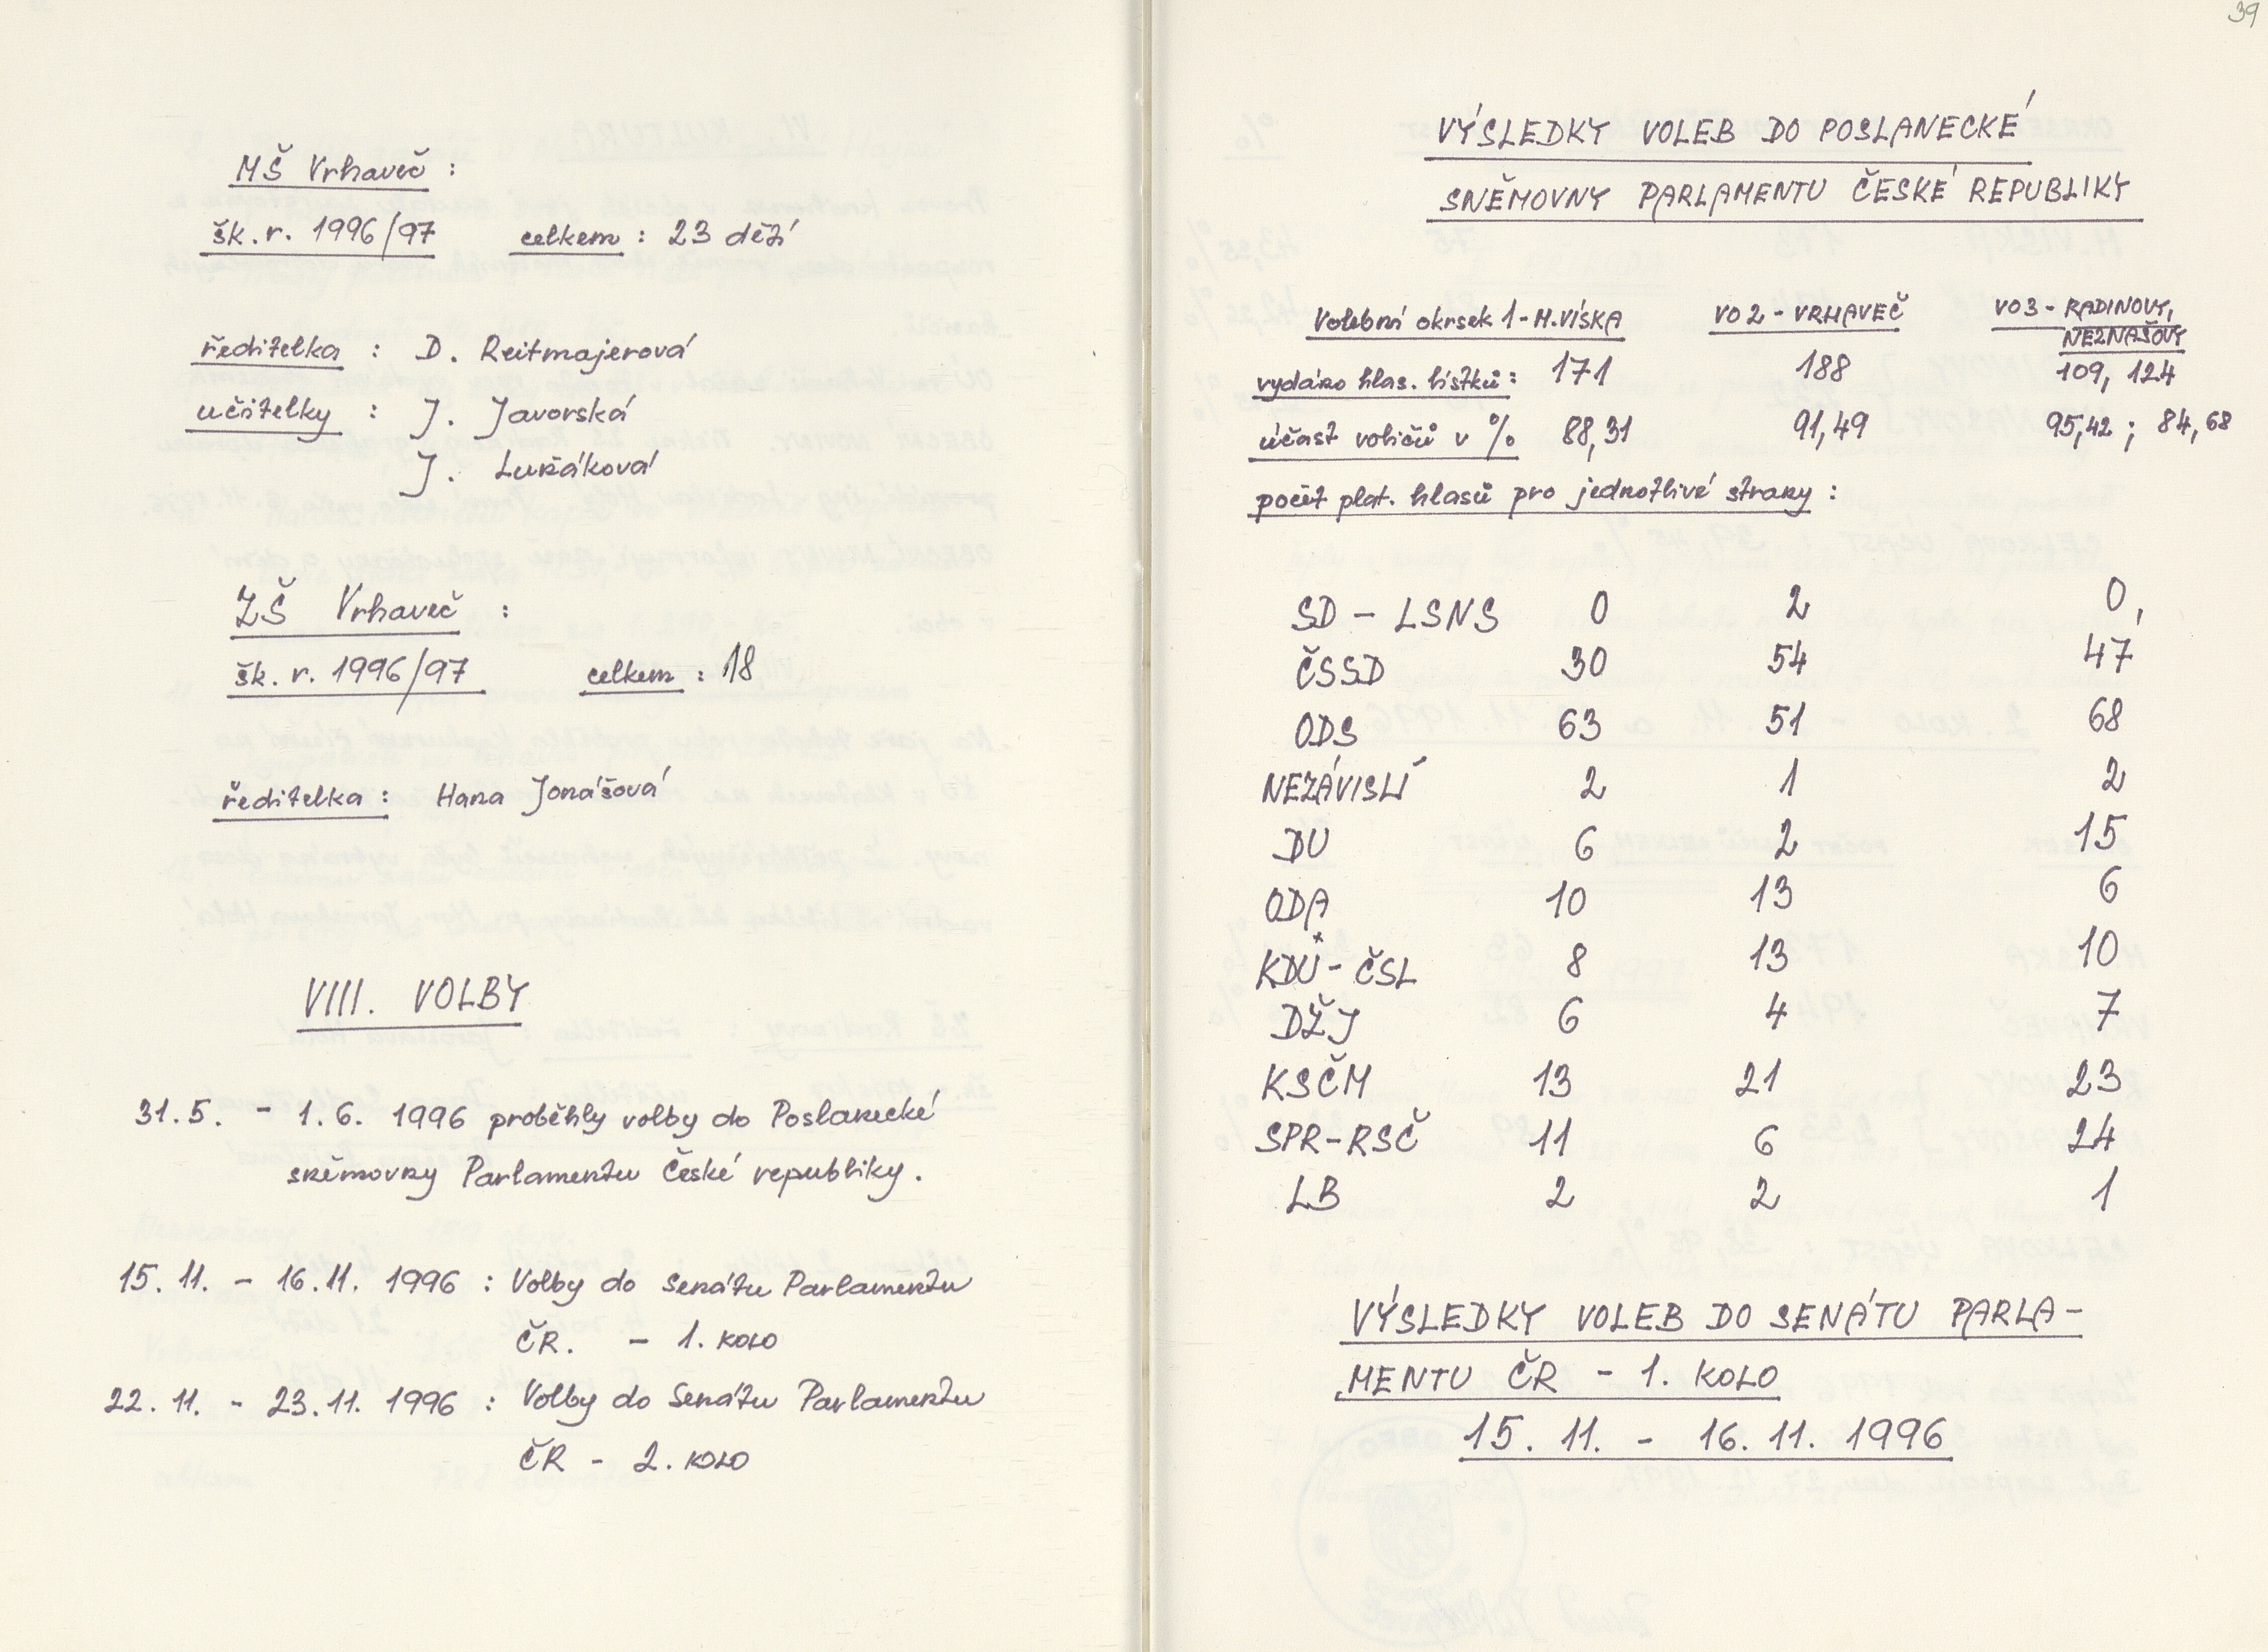 MŠ Vrhaveč :
šk. r. 1996/97 celkem : 23 dětí
ředitelka : D. Reitmajerová
učitelky : J. Javorská
J. Lukáková
ZŠ Vrhaveč :
šk. r. 1996/97 celkem : 18
ředitelka : Hana Jonášová
VIII. VOLBY
31.5. - 1.6. 1996 proběhly volby do Poslanecké
sněmovny Parlamentu České republiky.
15. 11. - 16.11. 1996 : Volby do Senátu Parlamentu
ČR. - 1. KOLO
22. 11. - 23.11. 1996 : Volby do Senátu Parlamentu
ČR - 2. KOLO
39
VÝSLEDKY VOLEB DO POSLANECKÉ
SNĚMOVNY PARLAMENTU ČESKÉ REPUBLIKY
Volební okrsek 1 - M.VÍSKA VO 2 - VRHAVEČ VO3 - RADINOVY,
NEZNAŠOVY
vydáno hlas. lístků : 171 188 109, 124
účast voličů v % 88,31 91,49 95,42 ; 84,68
počet plat. hlasů pro jednotlivé strany :
SD - LSNS 0 2 0,
ČSSD 30 54 47
ODS 63 51 68
NEZÁVISLÍ 2 1 2
DU 6 2 15
ODA 10 13 6
KDU - ČSL 8 13 10
DŽJ 6 4 7
KSČM 13 21 23
SPR-RSČ 11 6 24
LB 2 2 1
VÝSLEDKY VOLEB DO SENÁTU PARLA-
MENTU ČR - 1. KOLO
15. 11. - 16. 11. 1996